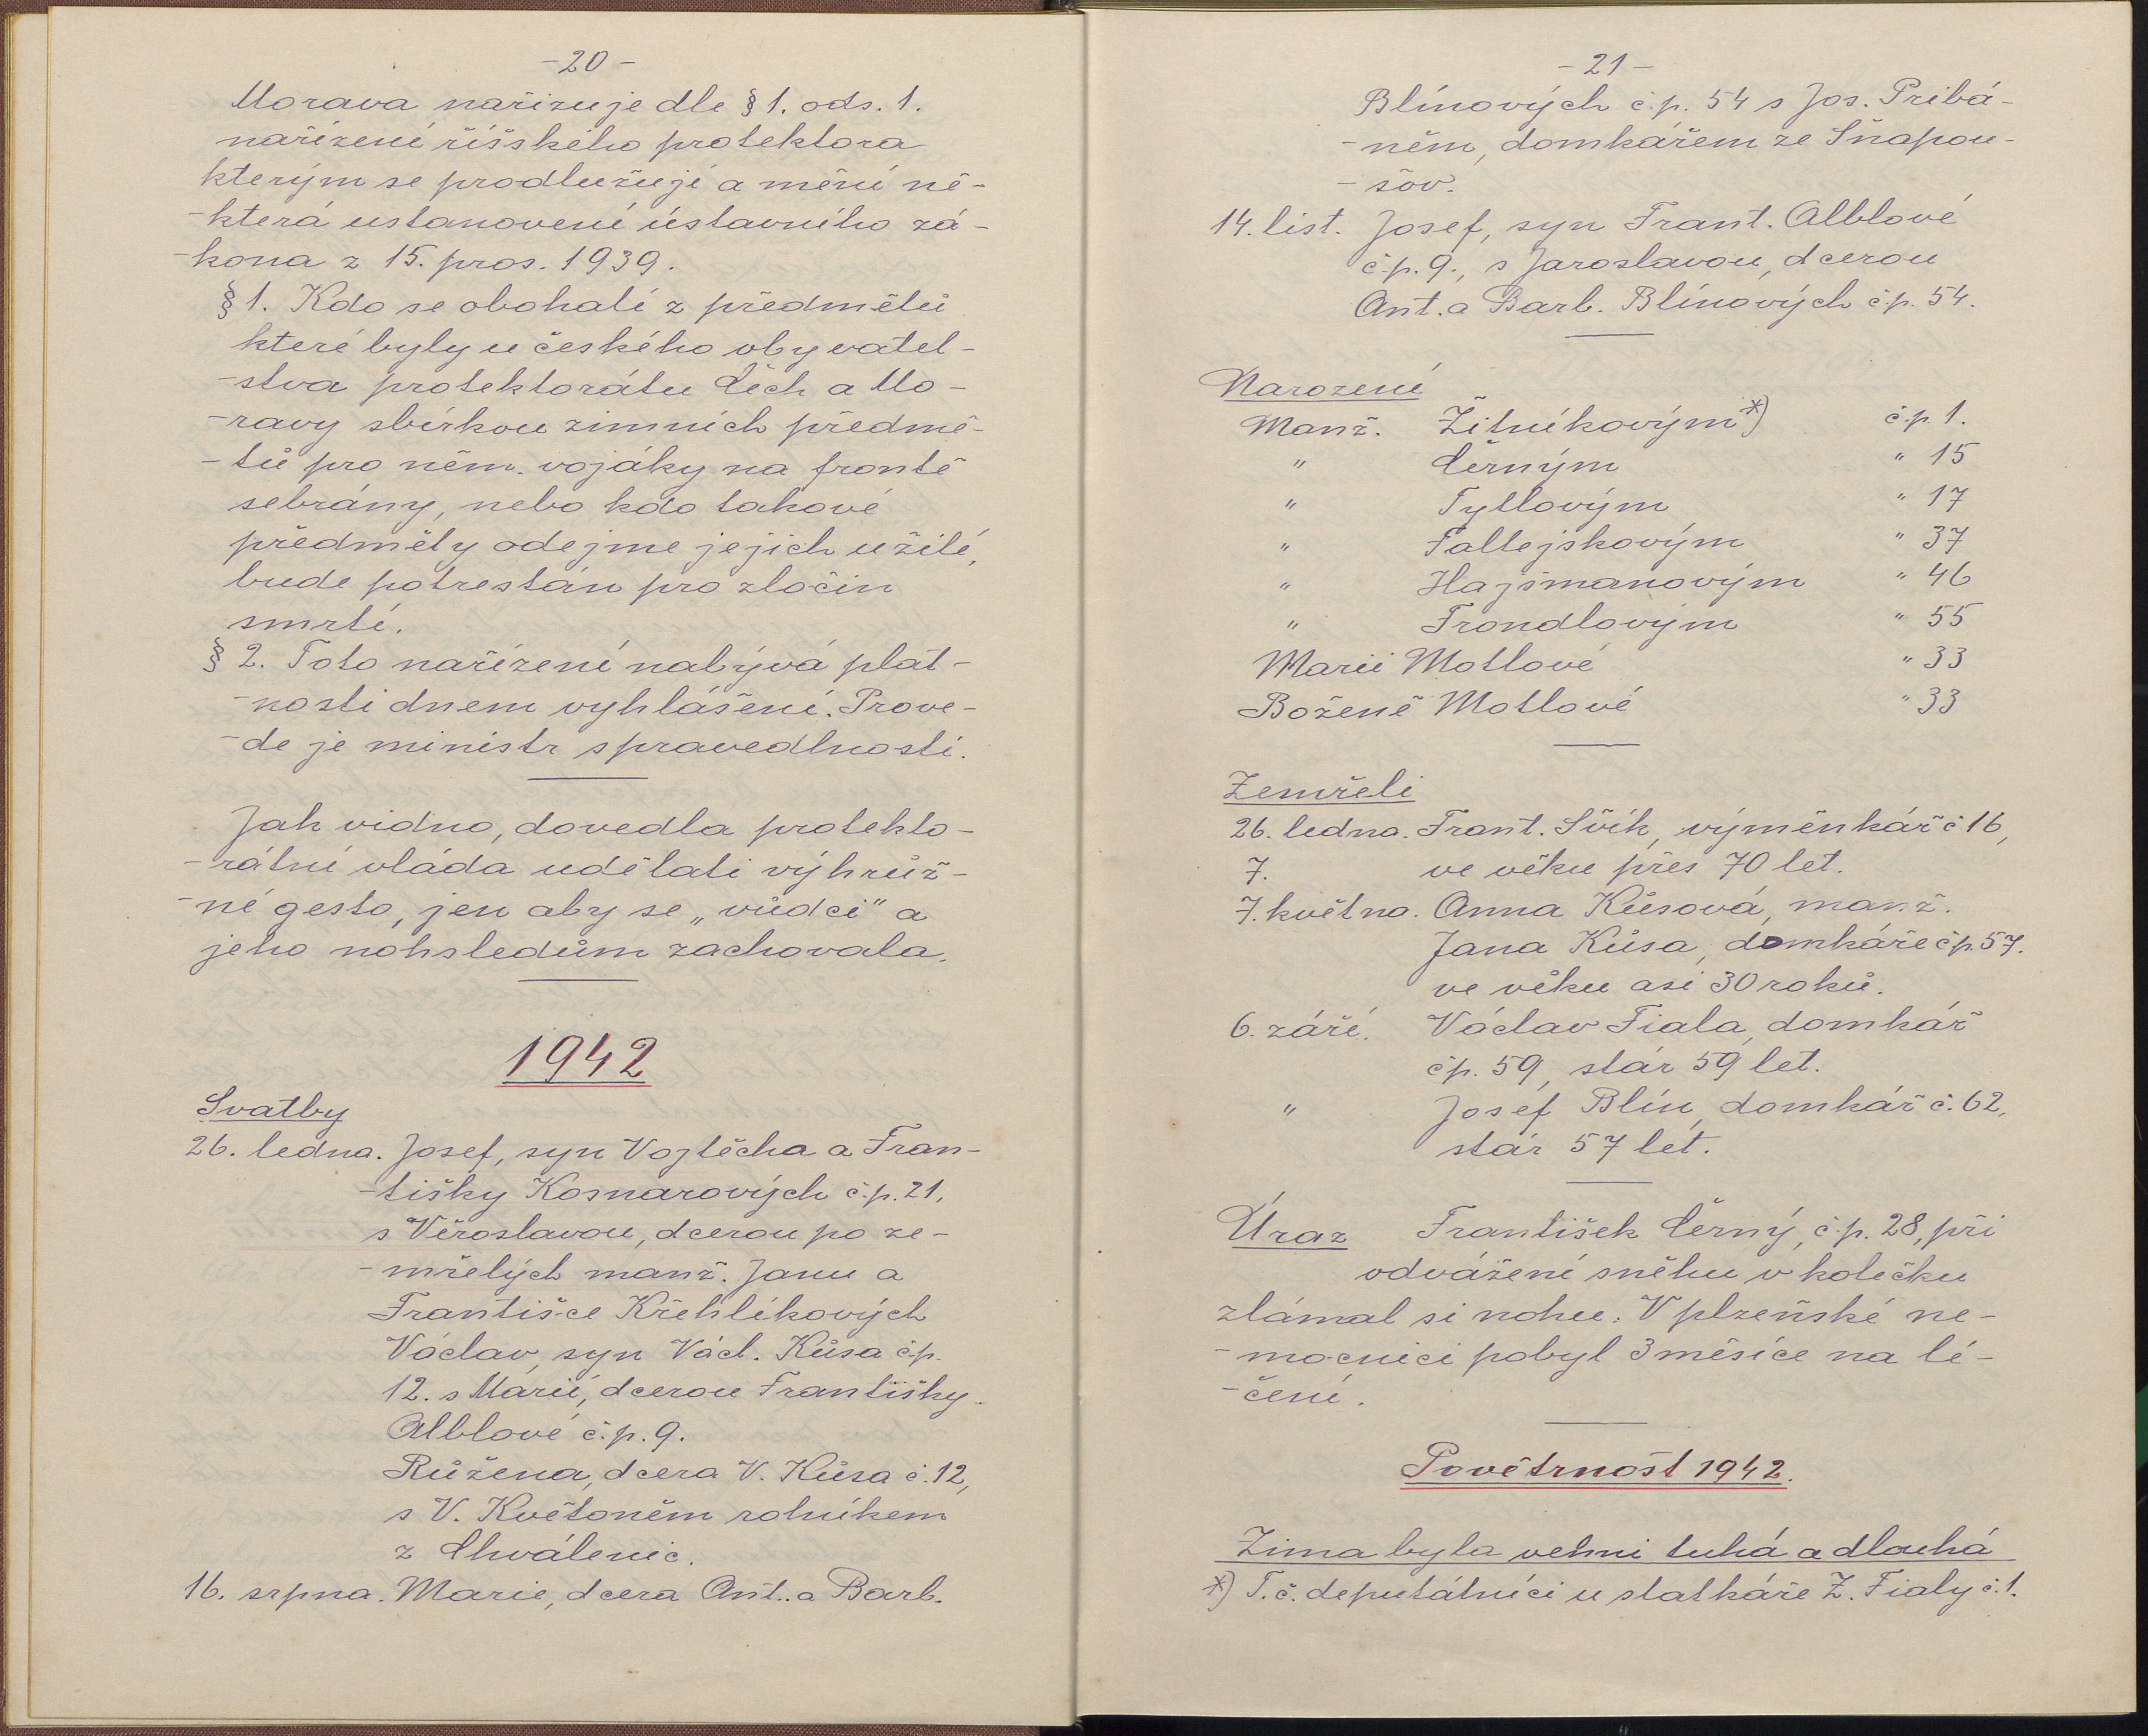 -20-
Morava nařizuje dle § 1. ods. 1.
nařízení říšského protektora
kterým se prodlužují a mění ně-
-která ustanovení ústavního zá-
-kona z 15. pros. 1939.
§ 1. Kdo se obohatí z předmětů
které byly u českého obyvatel-
-stva protektorátu Čech a Mo-
-ravy sbírkou zimních předmě-
-tů pro něm. vojáky na frontě
sebrány, nebo kdo takové
předměty odejme jejich užití,
bude potrestán pro zločin
smrtí.
§ 2. Toto nařízení nabývá plat-
-nosti dnem vyhlášení. Prove-
-de je ministr spravedlnosti.
Jak vidno, dovedla protekto-
-rátní vláda udělati výhrůž-
-né gesto, jen aby se „vůdci" a
jeho nohsledům zachovala.
1942
Svatby
26. ledna. Josef, syn Vojtěcha a Fran-
-tišky Kosnarových č.p. 21,
s Věroslavou, dcerou po ze-
-mřelých manž. Janu a
Františce Křehlíkových
Václav, syn Václ. Kůsa čp.
12. s Marií, dcerou Františky
Alblové č.p. 9.
Růžena, dcera V. Kůsa č. 12,
s V. Květoněm rolníkem
z Chválenic.
16. srpna. Marie, dcera Ant. a Barb.
-21-
Blínových č.p. 54 s Jos. Pribá-
-něm, domkářem ze Šňapou-
-šov.
14. list. Josef, syn Frant. Alblové
č.p. 9., s Jaroslavou, dcerou
Ant. a Barb. Blínových č.p. 54.
Narození
Manž. Žitníkovým *) č.p. 1.
" Černým " 15
" Tyllovým " 17
" Faltejskovým " 37
" Hajšmanovým " 46
" Trondlovým " 55
Marii Motlové " 33
Boženě Motlové " 33
Zemřeli
26. ledna. Frant. Švík, výměnkář č 16,
7. ve věku přes 70 let.
7. května. Anna Kůsová, manž.
Jana Kůsa, domkáře čp. 57.
ve věku asi 30 roků.
6. září. Václav Fiala, domkář
čp. 59, stár 59 let.
" Josef Blín, domkář č. 62,
stár 57 let.
Úraz František Černý, č.p. 28, při
odvážení sněhu v kolečku
zlámal si nohu. V plzeňské ne-
-mocnici pobyl 3 měsíce na lé-
-čení.
Povětrnost 1942.
Zima byla velmi tuhá a dlouhá
*) T. č. deputátníci u statkáře Z. Fialy č. 1.